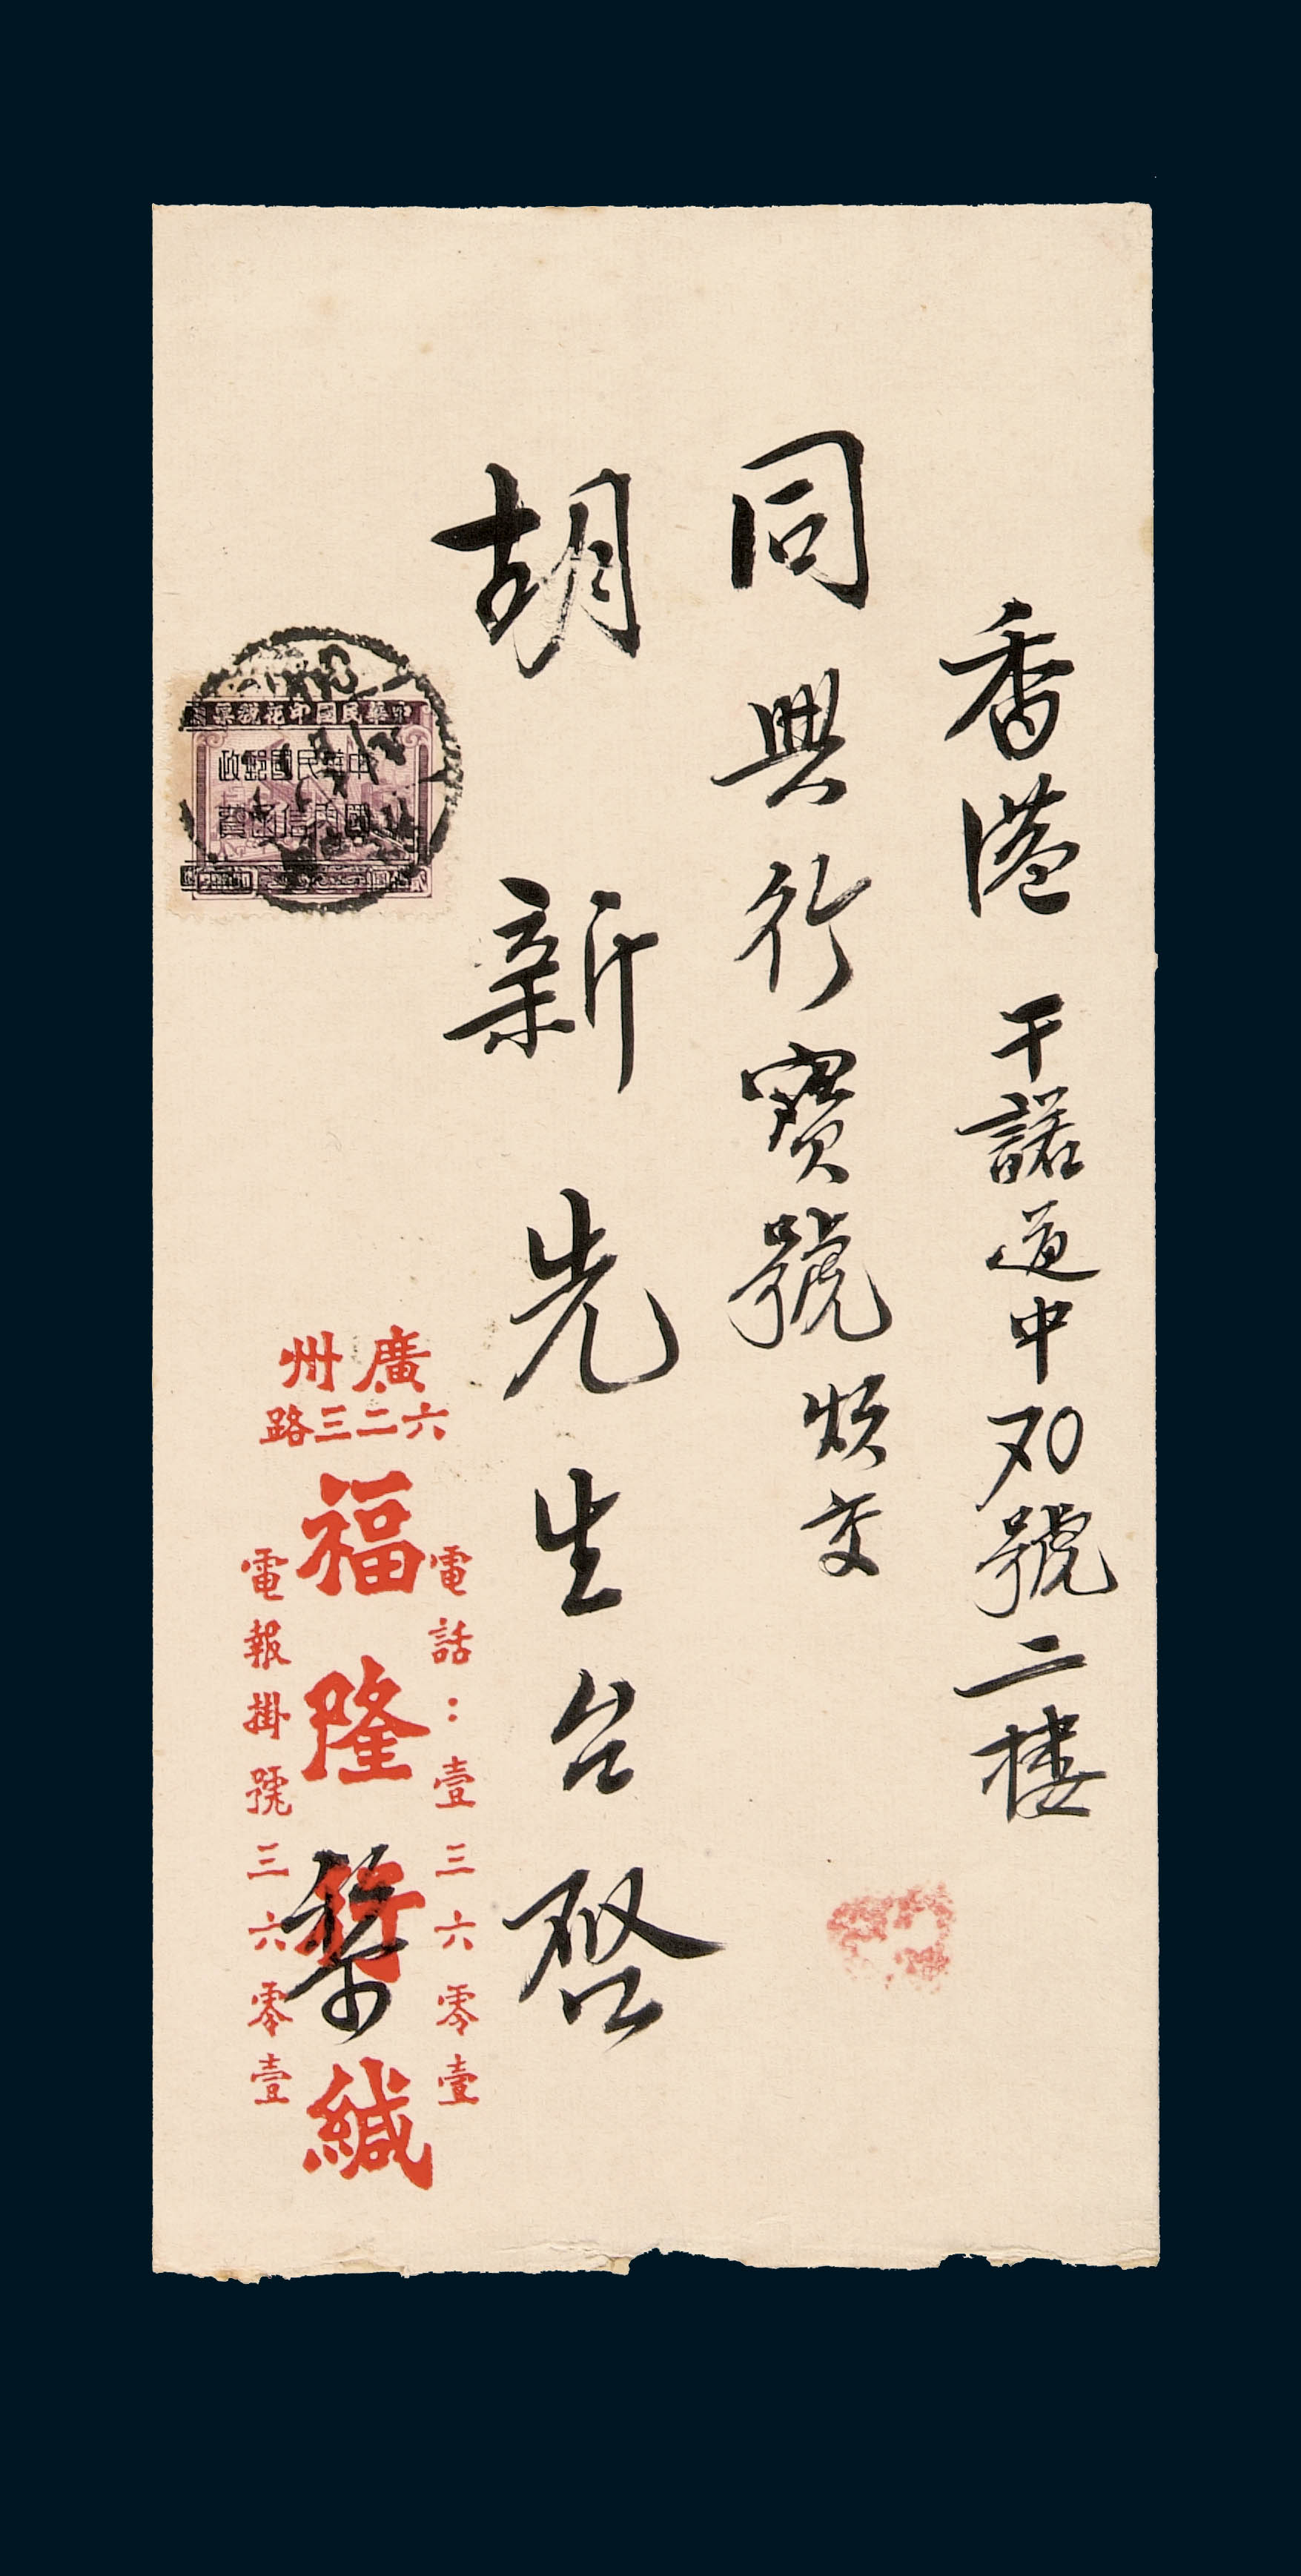 香港 干諾道中號二樓
同興行寶號 煩交
胡新先生台啓
中華民國印花稅票
中華民國郵政
國內信函費
廣州
六二三路
電話：壹三六零壹
福隆行緘
黎
電報掛號三六零壹